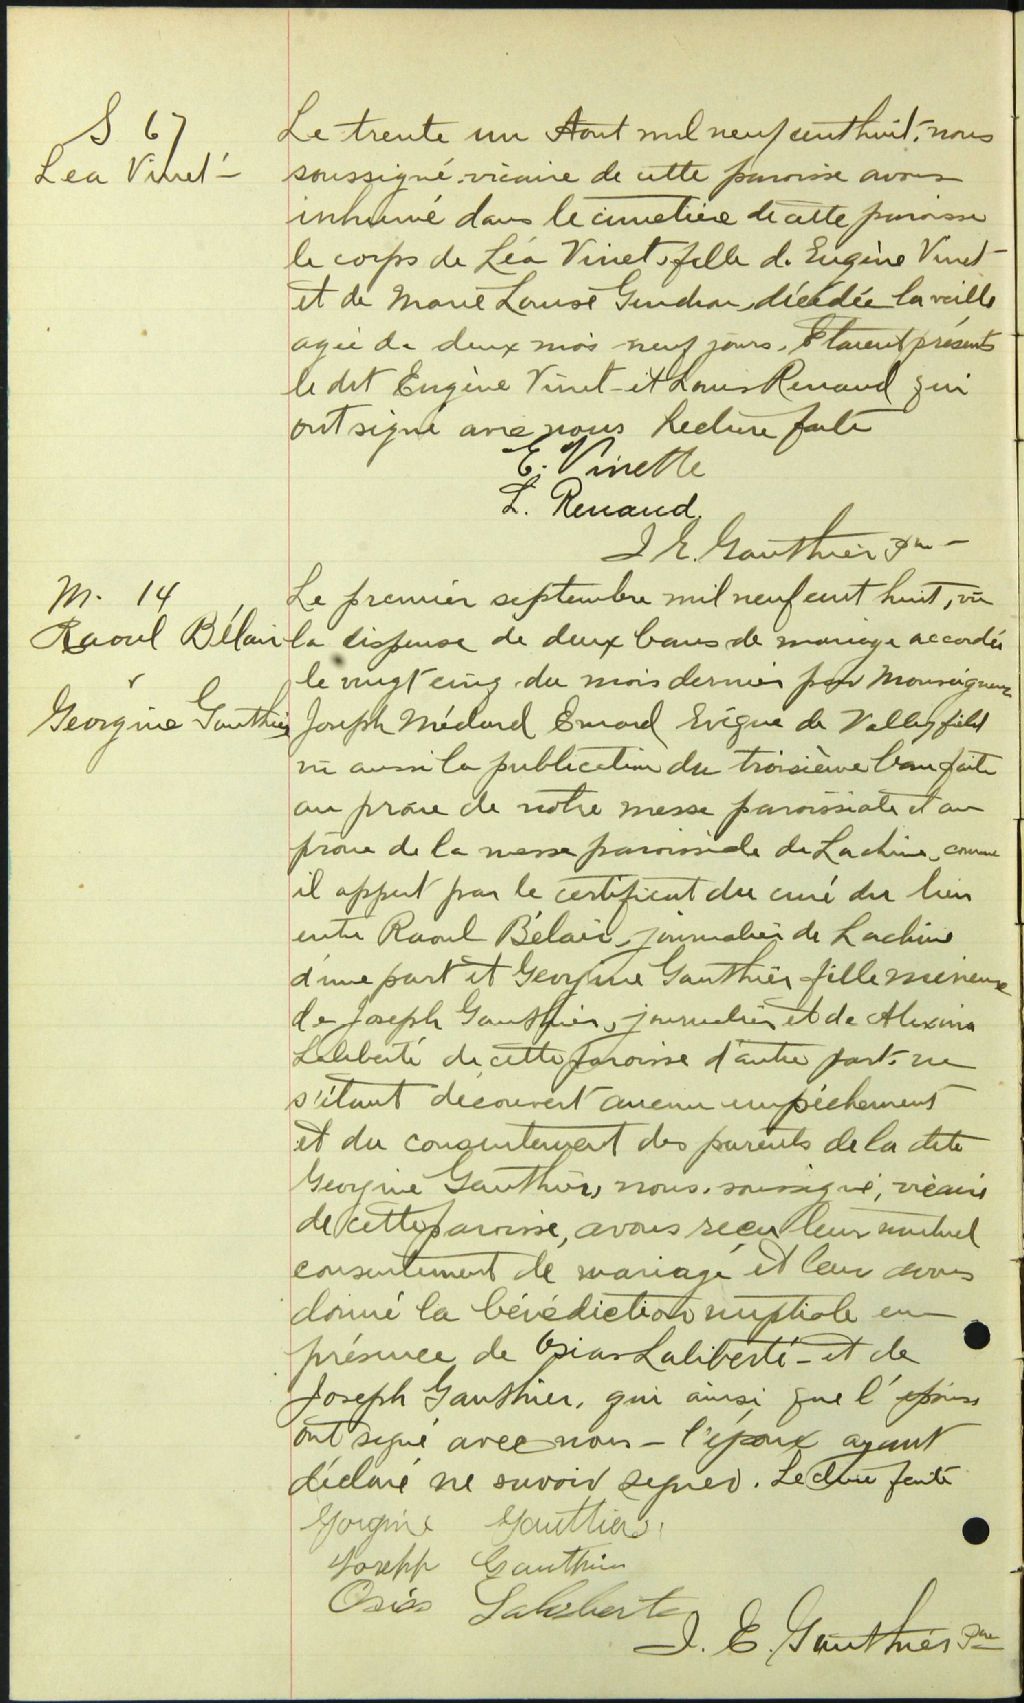 S 67
Léa Vinet
Le trente un Aout mil neuf cent huit, nous
soussigné vicaire de cette paroisse avons
inhumé dans le cimetière de cette paroisse
le corps de Léa Vinet, fille de Eugène Vinet
et de Marie Louise Gendron, décédée la veille
agée de deux mois neuf jours. Etaient présents
le dit Eugène Vinet et Louis Renaud qui
ont signé avec nous Lecture faite
E. Vinette
L. Renaud.
J E. Gauthier Ptre
M. 14
Raoul Bélair
&
Georgine Gauthier
Le premier septembre mil neuf cent huit, vu
la dispense de deux bans de mariage accordée
le vingt cinq du mois dernier par Monseigneur
Joseph Médard Emard Evêque de Valleyfield
vu aussi la publication du troisième ban faite
au prône de notre messe paroissiale et au
prône de la messe paroissiale de Lachine, comme
il appert par le certificat du curé du lieu
entre Raoul Bélair, journalier de Lachine
d'une part et Georgine Gauthier fille mineure
de Joseph Gauthier, journalier et de Alexina
Laliberté de cette paroisse d'autre part. ne
s'étant découvert aucun empêchement
et du consentement des parents de la dite
Georgine Gauthier, nous, soussigné, vicaire
de cette paroisse, avons reçu leur mutuel
consentement de mariage et leur avons
donné la bénédiction nuptiale en
présence de Osias Laliberté et de
Joseph Gauthier, qui ainsi que l'épouse
ont signé avec nous - l'époux ayant
déclaré ne savoir signer. Lecture faite
Gorgine Gauthier
Joseph Gauthier
Osias Laliberté
J. E. Gauthier Ptre